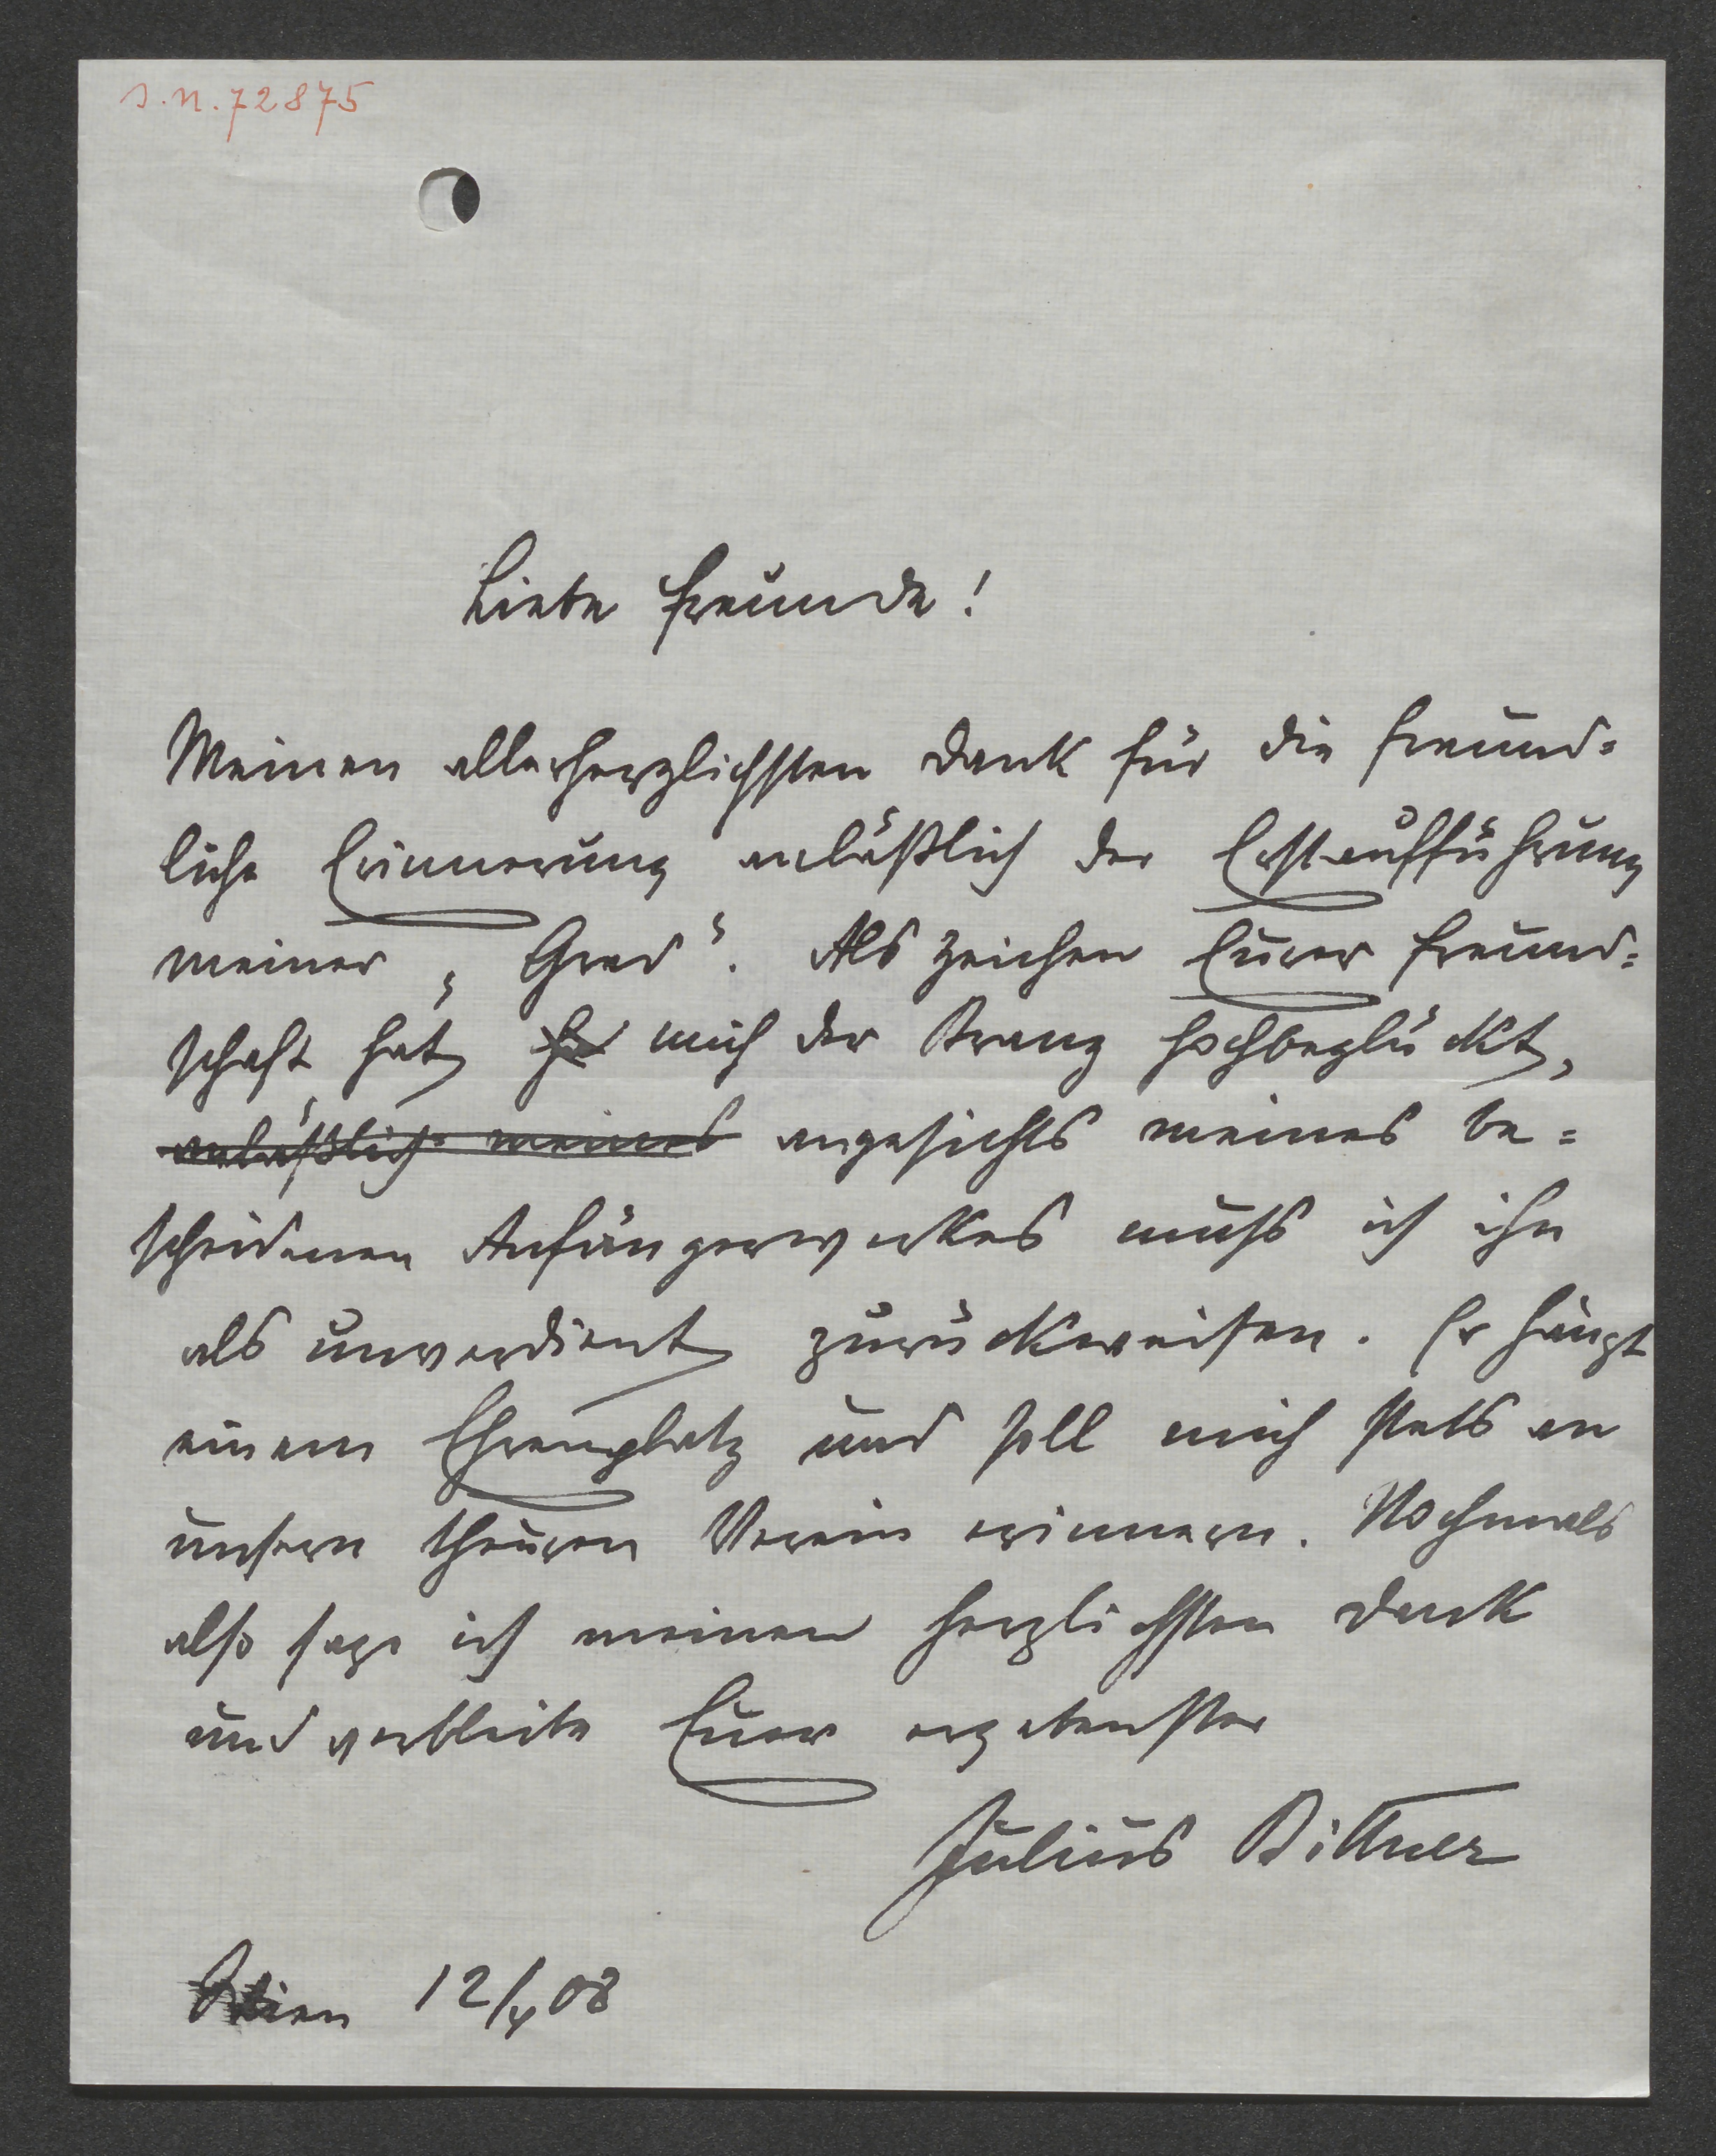 I.N. 72875
Liebe Freunde!
Meinen allerherzlichsten Dank für die freund=
liche Erinnerung anläßlich der Erstaufführung
meiner „Gred“. Als Zeichen Eurer Freund=
schaft hat mich der Kranz hochbeglückt,
anläßlich meines angesichts meines be=
scheidenen Anfängerwerkes muß ich ihn
als unverdient zurückweisen. Er hängt
einem Ehrenplatz und soll mich stets an
unsern theuren Verein erinnern. Nochmals
also sage ich meinen herzlichsten Dank
und verbleibe Euer ergebenster
Julius Bittner
Wien 12/4 08